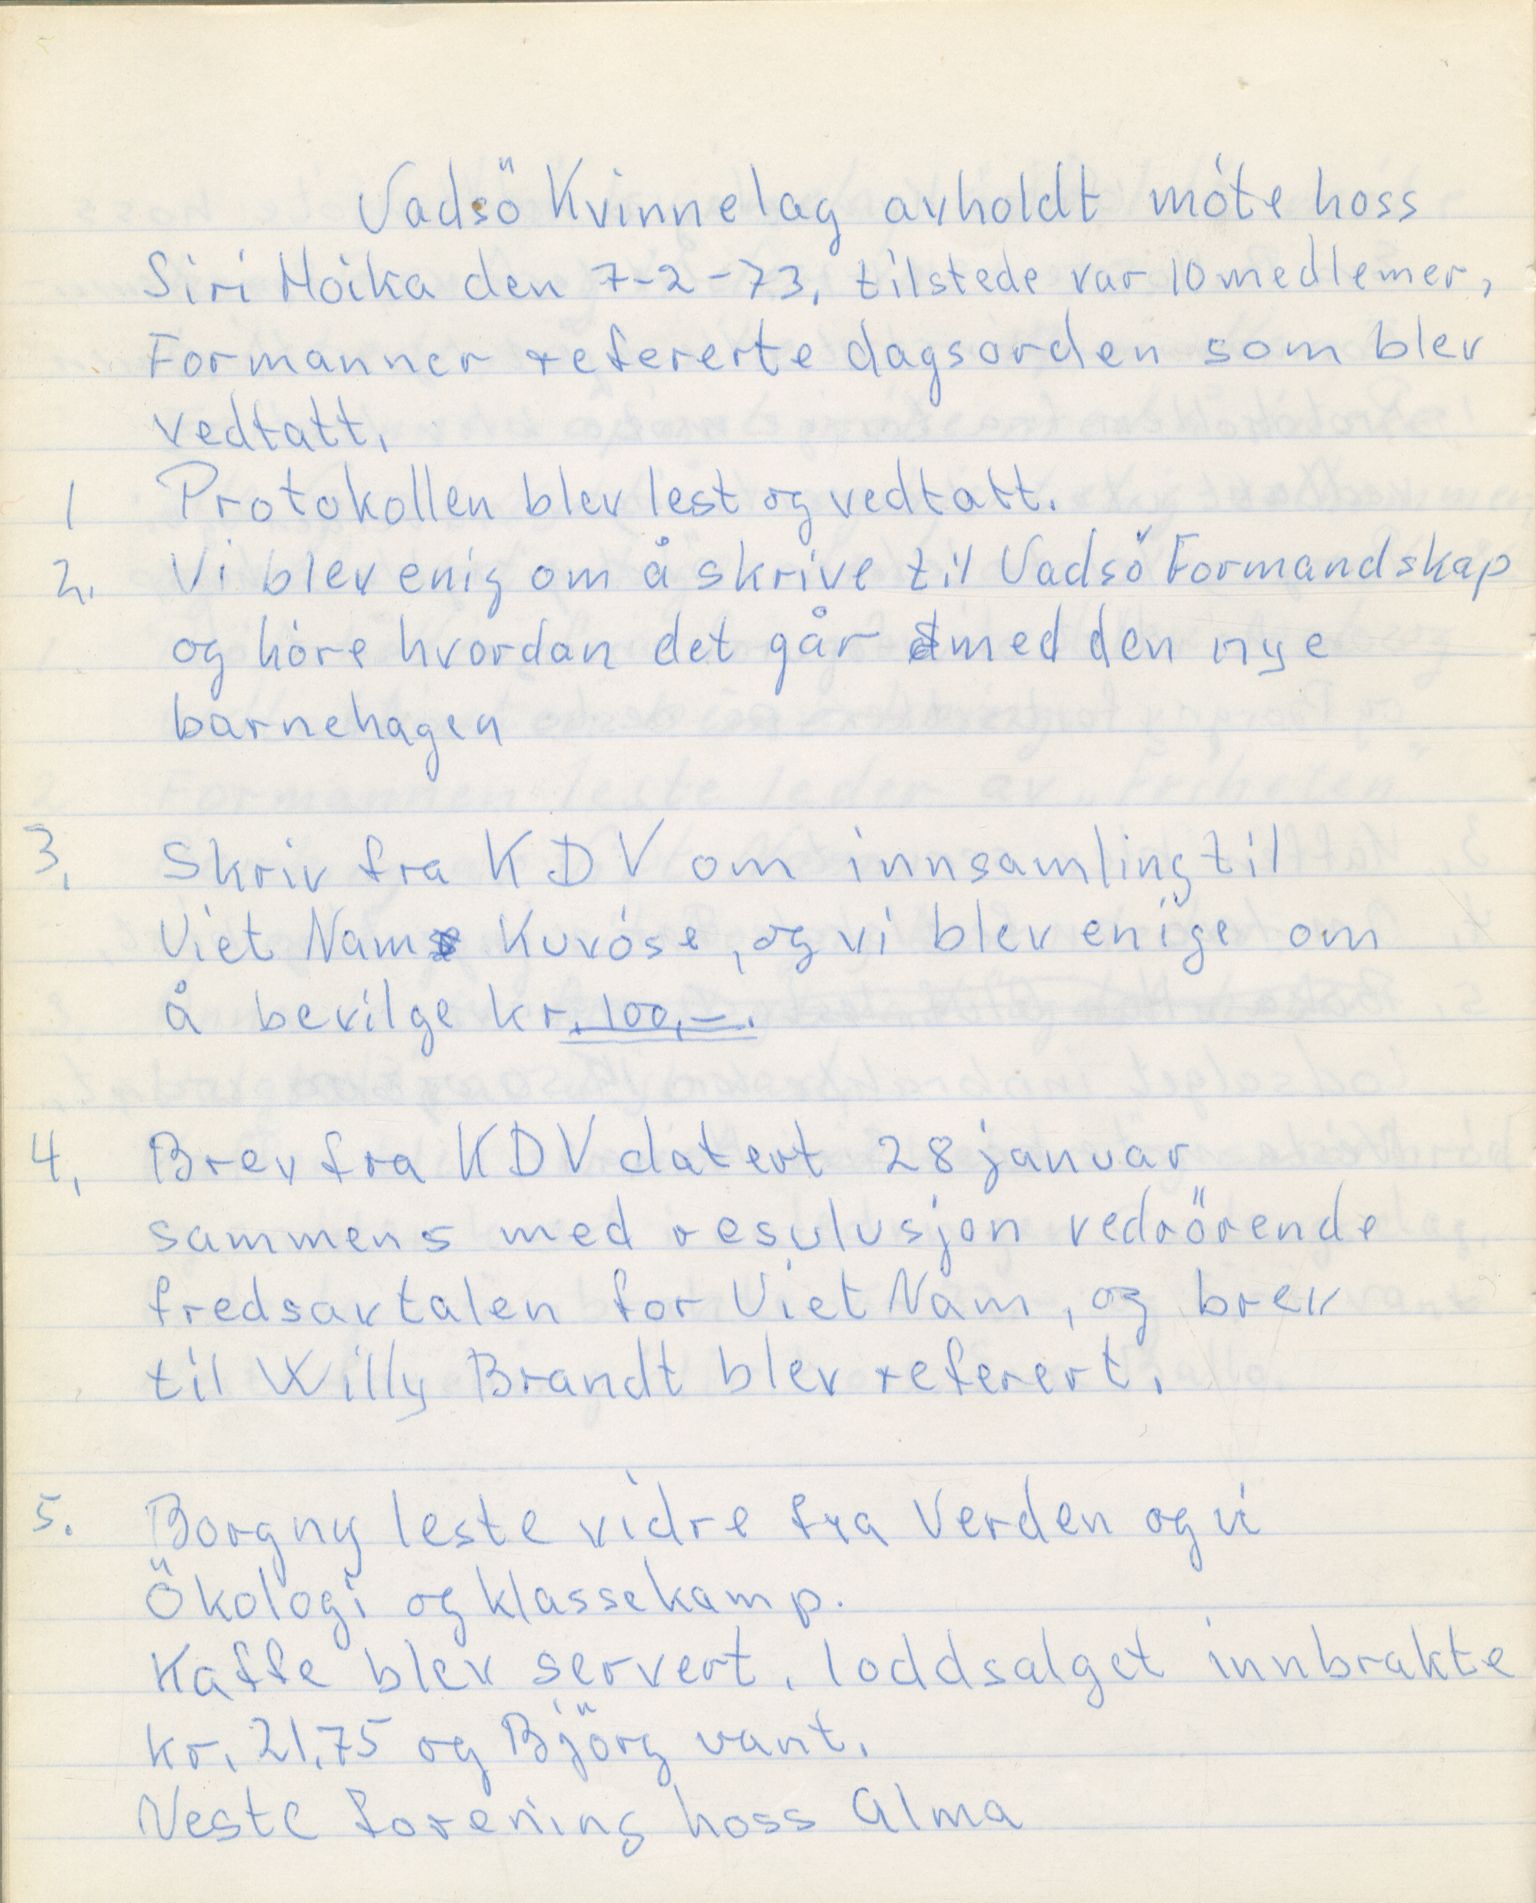 Vadsö Kvinnelag avholdt móte hoss
Siri Hóika den 7-2-73, tilstede var 10 medlemer,
Formannen refererte dagsorden som blev
vedtatt,
1 Protokollen blev lest og vedtatt.
2. Vi blev enig om å skrive til Vadsö Formandskap
og hóre hvordan det går med den nye
barnehagen
3, Skriv fra KDV om innsamling til
Viet Nam Kuvóse, og vi blev enige om
å bevilge kr. 100,-.
4, Brev fra KDV datert 28 januar
sammens med resulusjon vedrörende
fredsavtalen for Viet Nam, og brev
til Willy Brandt blev referert,
5. Borgny leste vidre fra Verden og vi
Ökologi og klassekamp.
Kaffe blev servert, loddsalget innbrakte
kr, 21,75 og Björg vant,
Neste forening hoss Alma